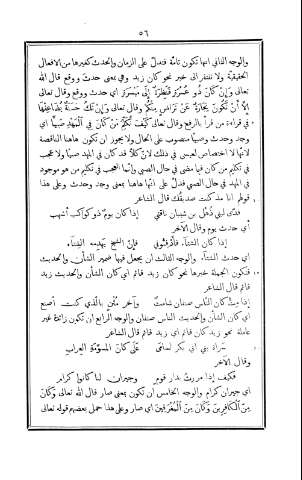 ٥٦
والوجه الثاني انها تكون تامّة فتدلّ على الزمان والحدث كغيرها من الافعال
الحقيقيّة ولا تفتقر الى خبر نحو كان زيد وهي بمعنى حدث ووقع قال الله
تعالى وَإِنْ كَانَ ذُو عُسْرَةٍ فَنَظِرَةٌ إِلَى مَيْسَرَةٍ اى حدث ووقع وقال تعالى
إِلَّا أَنْ تَكُونَ تِجَارَةٌ عَنْ تَرَاضٍ مِنْكُمْ وقال تعالى وَإِنْ تَكُ حَسَنَةٌ يُضَاعِفْهَا
في قراءة من قرأ بالرفع وقال تعالى كَيْفَ نُكَلِّمُ مَنْ كَانَ فِي الْمَهْدِ صَبِيًّا اى
وجد وحدث وصبيّا منصوب على الحال ولا يجوز ان تكون هاهنا الناقصة
لانّها لا اختصاص لعيسى في ذلك لانّ كلّا قد كان في المهد صبيّا ولا عجب
في تكليم من كان فيما مضى في حال الصبى وانّما العجب في تكليم من هو موجود
في المهد في حال الصبى فدلّ على انّها هاهنا بمعنى وجد وحدث وعلى هذا
قولهم انا مذ كنت صديقك قال الشاعر
فدًى لبني ذُهْل بن شيبان ناقتي إذا كان يوم ذو كواكب أشهب
اى حدث يوم وقال الآخر
إذا كان الشتآء فأدْفئوني فإنّ الشيخ يهدمه الشتآء
اى حدث الشتآء. والوجه الثالث ان يجعل فيها ضمير الشأن والحديث
فتكون الجملة خبرها نحو كان زيد قائم اى كان الشأن والحديث زيد
قائم قال الشاعر
إذا متّ كان الناس صنفان شامتٌ وآخر مثنٍ بالذي كنت أصنع
اى كان الشأن والحديث الناس صنفان والوجه الرابع ان تكون زائدة غير
عاملة نحو زيد كان قائم اى زيد قائم قال الشاعر
سراة بني ابي بكر تسامى على كان المسوّمة العراب
وقال الآخر
فكيف إذا مررت بدار قوم وجيران لنا كانوا كرام
اى جيران كرام والوجه الخامس ان تكون بمعنى صار قال الله تعالى وَكَانَ
مِنَ الْكَافِرِينَ وَكَانَ مِنَ الْمُغْرَقِينَ اى صار وعلى هذا حمل بعضهم قوله تعالى